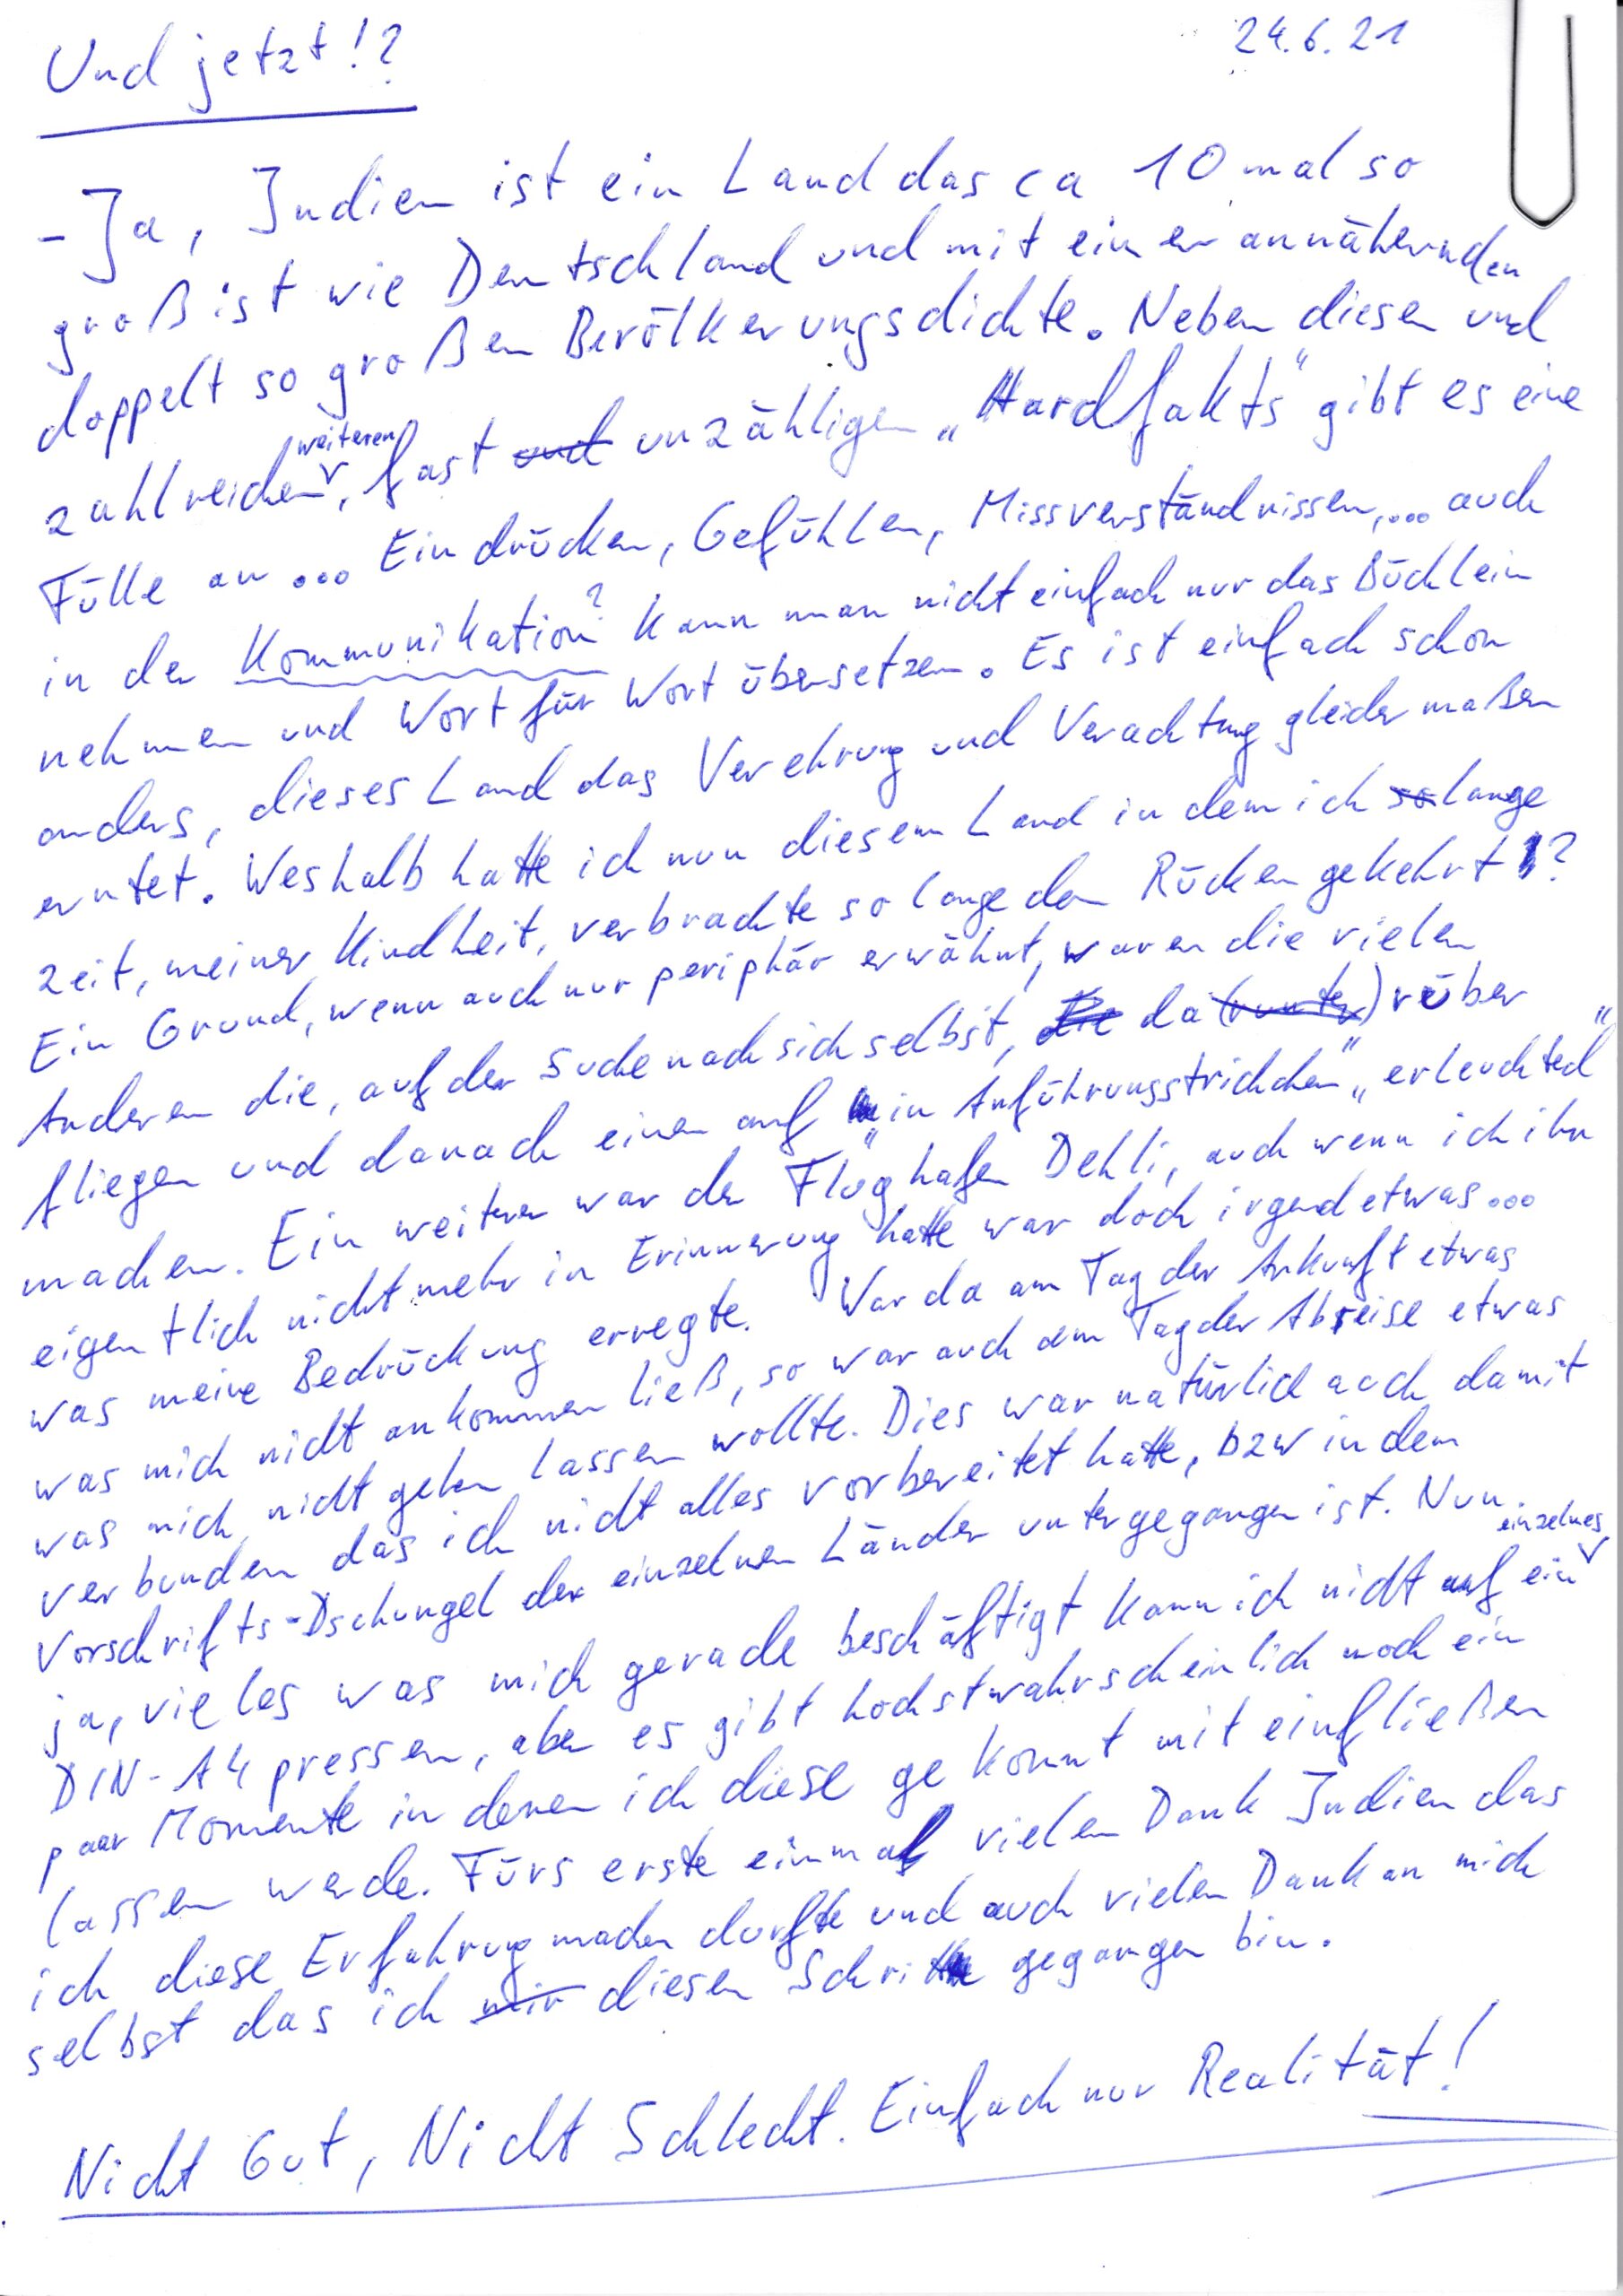 24.6.21
Und jetzt!?
- Ja, Indien ist ein Land das ca 10 mal so
groß ist wie Deutschland und mit einer annähernden
doppelt so großen Bevölkerungsdichte. Neben diesen und
zahlreichen weiteren, fast und unzähligen „Hardfakts" gibt es eine
Fülle an ... Eindrücken, Gefühlen, Missverständnissen,... auch
in der Kommunikation? Kann man nicht einfach nur das Büchlein
nehmen und Wort für Wort übersetzen. Es ist einfach schon
anders, dieses Land das Verehrung und Verachtung gleichermaßen
erntet. Weshalb hatte ich nun diesem Land in dem ich so lange
zeit, meiner Kindheit, verbrachte so lange den Rücken gekehrt!?
Ein Grund, wenn auch nur periphär erwähnt, waren die vielen
Anderen die, auf der Suche nach sich selbst, die da (runter) rüber
fliegen und danach einen auf „in Anführungsstrichchen" „erleuchted"
machen. Ein weiterer war der Flughafen Dehli, auch wenn ich ihn
eigentlich nicht mehr in Erinnerung hatte war doch irgendetwas...
was meine Bedrückung erregte. War da am Tag der Ankunft etwas
was mich nicht ankommen ließ, so war auch am Tag der Abreise etwas
was mich nicht gehen lassen wollte. Dies war natürlich auch damit
verbunden das ich nicht alles vorbereitet hatte, bzw in dem
Vorschrifts-Dschungel der einzelnen Länder untergegangen ist. Nun
ja, vieles was mich gerade beschäftigt kann ich nicht auf ein einzelnes
DIN-A4 pressen, aber es gibt höchstwahrscheinlich noch ein
paar Momente in denen ich diese gekonnt mit einfließen
lassen werde. Fürs erste einmal vielen Dank Indien das
ich diese Erfahrung machen durfte und auch vielen Dank an mich
selbst das ich mir diesen Schritt gegangen bin.
Nicht Gut, Nicht Schlecht. Einfach nur Realität!